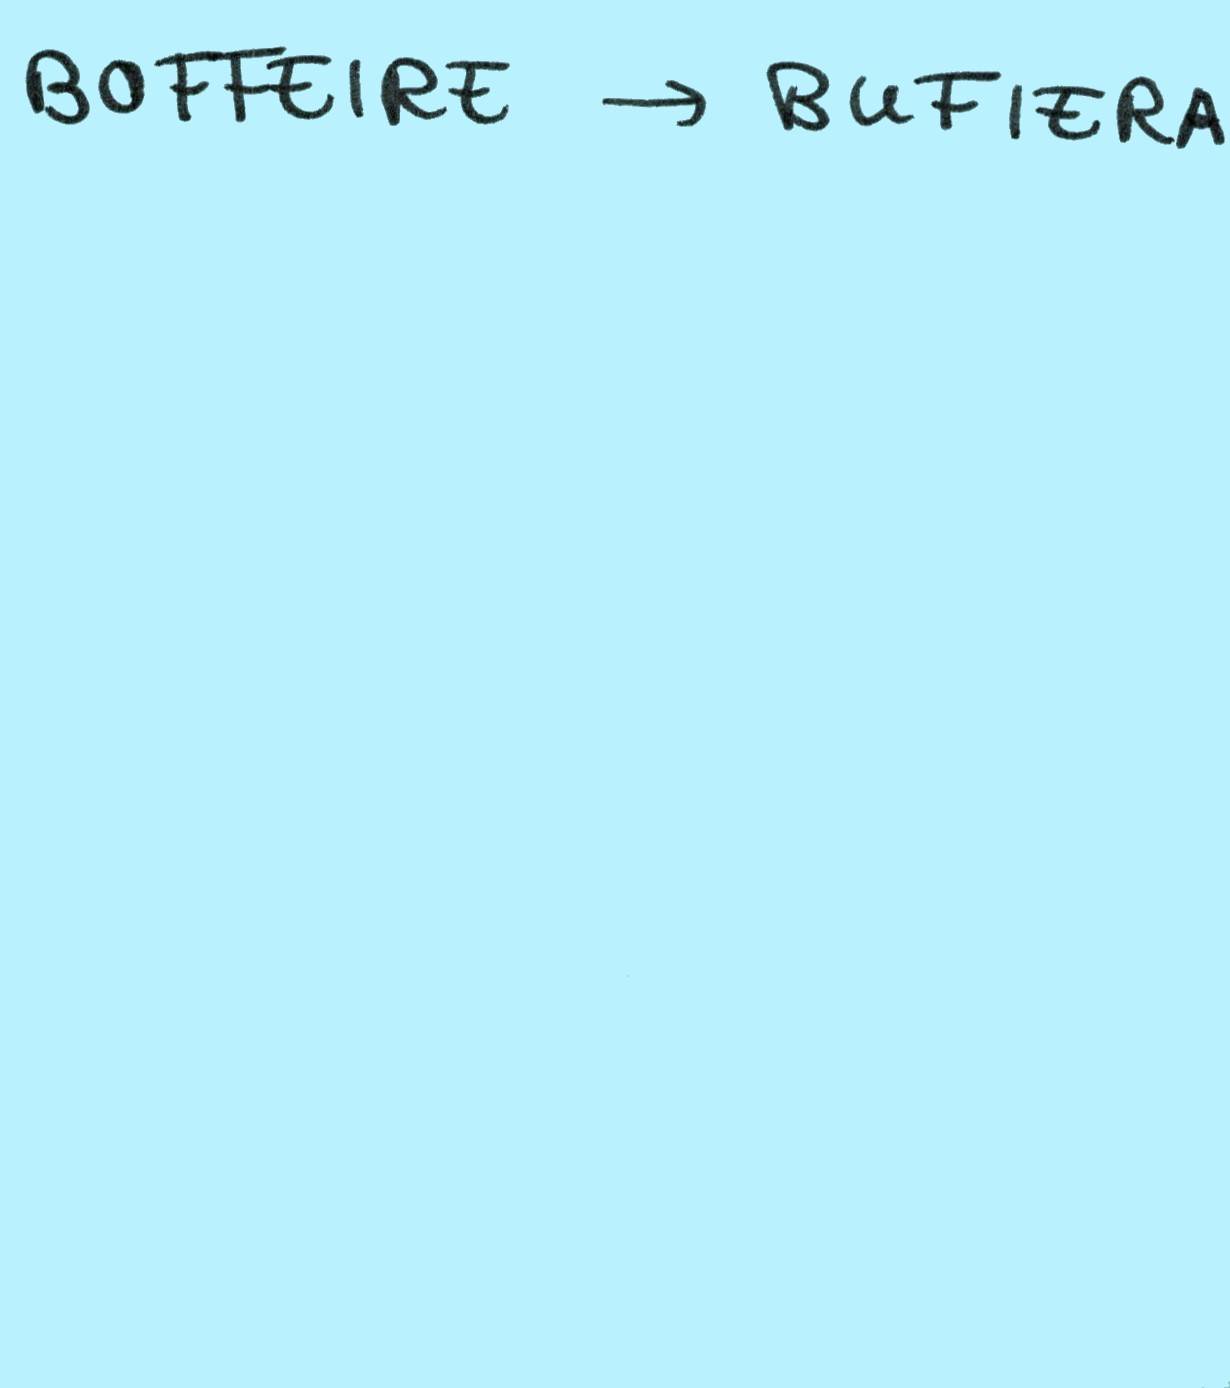 BOFFEIRE → BUFIERA